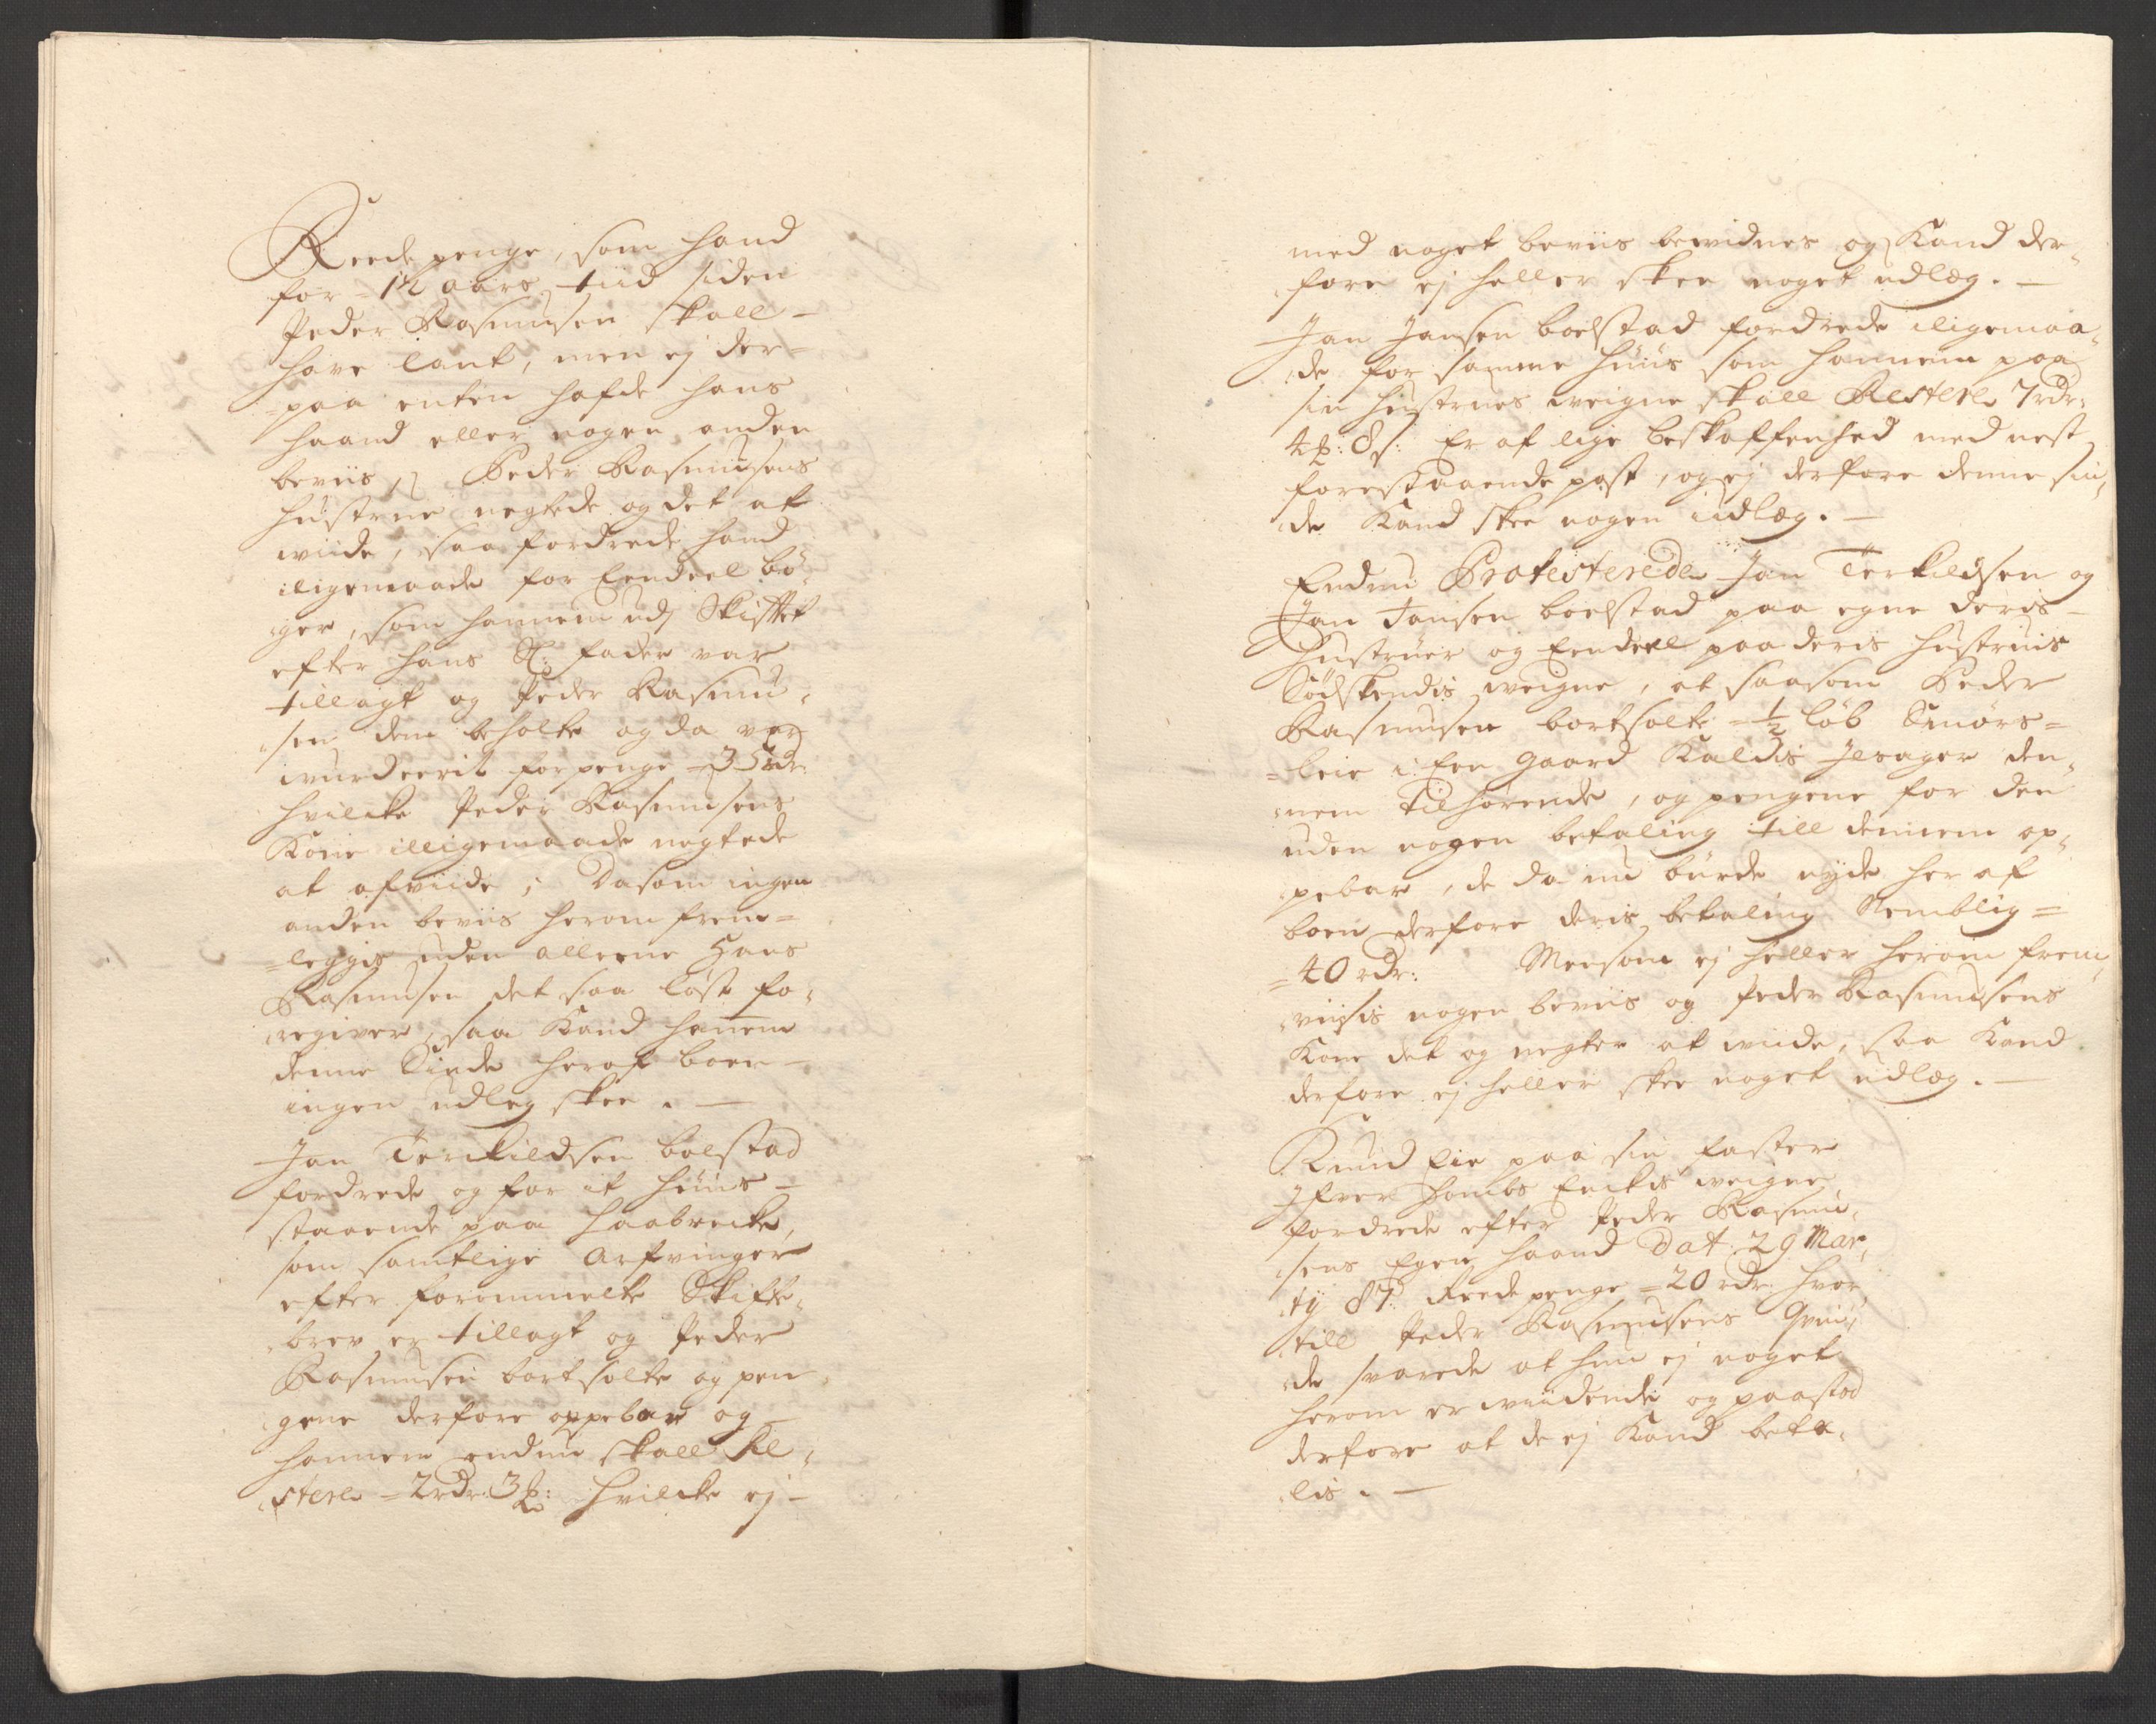 Reede penge, som hand
for = 12 aars tiid siden
Peder Rasmusen skall -
have lant, men ej der=
=paa enten hafde hans
haand eller nogen anden
beviis, Peder Rasmusens
hustrue negtede og det at
wiide, saa fordrede hand
iligemaade for Eendeel bö=
=ger, som hannem udj Skifftet
efter hans Sl: fader var
tillagt og Peder Rasmu=
=sen dem beholte og da var
wurderit for penge = 35 rdr:
hvilcke Peder Rasmusens
Kone illigemaade negtede
at afviide; Dasom ingen
anden beviis herom frem=
=leggis uden alleene Hans
Rasmusen det saa löst fo=
=regiver, saa Kand hannem
denne Sinde heraf boen -
ingen udleg skee. -
Jan Terkildsen bolstad
fordrede og for it huus -
staaende paa Haabrecke,
som samtlige Arfvinger
efter forommelte Skifte=
=brev er tillagt og Peder
Rasmusen bortsolte og pen=
=gene derfore oppebar og
hannem endnu skall Re=
=stere = 2 rdr: 3 ß: hvilcke ej -
med noget beviis bevidnes og Kand der=
=fore ej heller skee noget udlæg. -
Jan Jansen bolstad fordrede iligemaa=
=de for samme huus som hannem paa
sin hustrues weigne skall Restere 7 rdr:
4 ß: 8 s: Er af lige beskaffenhed med nest
forestaaende post, og ej derfore denne sin=
=de Kand skee nogen udlæg. -
Endnu Protesterede Jan Terkildsen og
Jan Jansen bolstad paa egne deris -
hustruer og Eendeel paa deris hustruis
Södskendis weigne, at saasom Peder
Rasmusen bortsolte = 1/2 löb Smörs=
=leie i Een gaard Kaldis Jlsager den=
=nem tilhörende, og pengene for den
uden nogen betaling till dennem op=
=pebar, de da nu burde nyde her af
boen derfore deris betaling Nemblig =
= 40 rdr: Mensom ej heller herom frem=
=viisis nogen beviis og Peder Rasmusens
Kone det og negter at wiide, saa Kand
derfore ej heller skee noget udlæg. -
Knud Lie paa sin faster
Jfver Hombs Enckis weigne
fordrede efter Peder Rasmu=
=sens Egen haand Dat. 29 Mar=
=tij 87: Reede penge = 20 rdr: hvor=
=till Peder Rasmusens Qvin=
=de svarede at hun ej noget
herom er wiidende og paastod
derfore at de ej Kand beta=
=lis. -